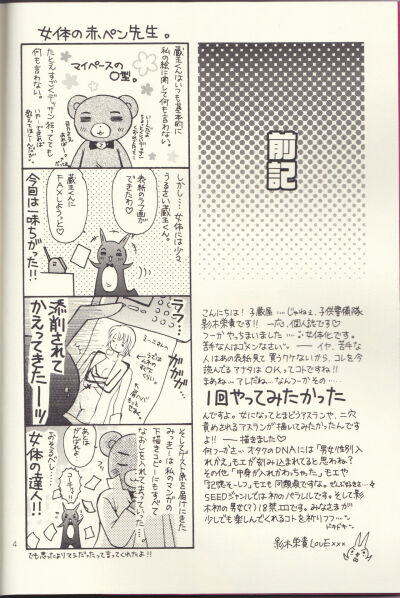 女体の赤ペン先生。
蔵王くんはいつも基本的に
私の絵に関して何も言わない。
マイペースの
O型。
たとえすごくデッサン狂ってても
何も言わない。
しかし…女体には少々
うるさい蔵王くん。
表紙のラフ画が
できたわ♡
蔵王くんに
FAXしようっと♡
今回は一味ちがった!!
ラフ…
添削されて
かえってきたーーッ
ががががが
そしてゲスト原稿届けにきた
みっきーは私のマンガの
下描きコピーにもすべて
なおしを入れてまわっていった…。
あとは
がんばれよ
おそるべし…
女体の達人!!
でも思ったよりマシだったって言ってくれたよ!!
4
前記
こんにちは!子蔵屋…じゃねぇ、子供警備隊
影木栄貴です!!一応、個人誌です♡
つーかやっちまいました……女体化です。
苦手な人はゴメンなさい。――イヤ、苦手な
人はあの表紙見て買うワケないから、コレを今
読んでるアナタはOKってコトですね!!
まあね…アレだね…なんつーかその……
1回やってみたかった
んですよ。女になってとまどうアスランや、二穴
責められるアスランが描いてみたかったんです
よ!!――描きました♡
何つーかさー、オタクのDNAには「男女性別入
れかえ」モエが刻み込まれてると思わね?
その他「中身が入れかわっちゃった」モエや
「記憶そーしつ」モエも同類項ですな。ぜんぶ好きさ…
SEEDジャンルでは初のパラレルです。そして影
木初の男女(?)18禁エロです。みなさまが
少しでも楽しんでくれるコトを祈りつつ…
ドキドキ…
影木栄貴LOVE×××